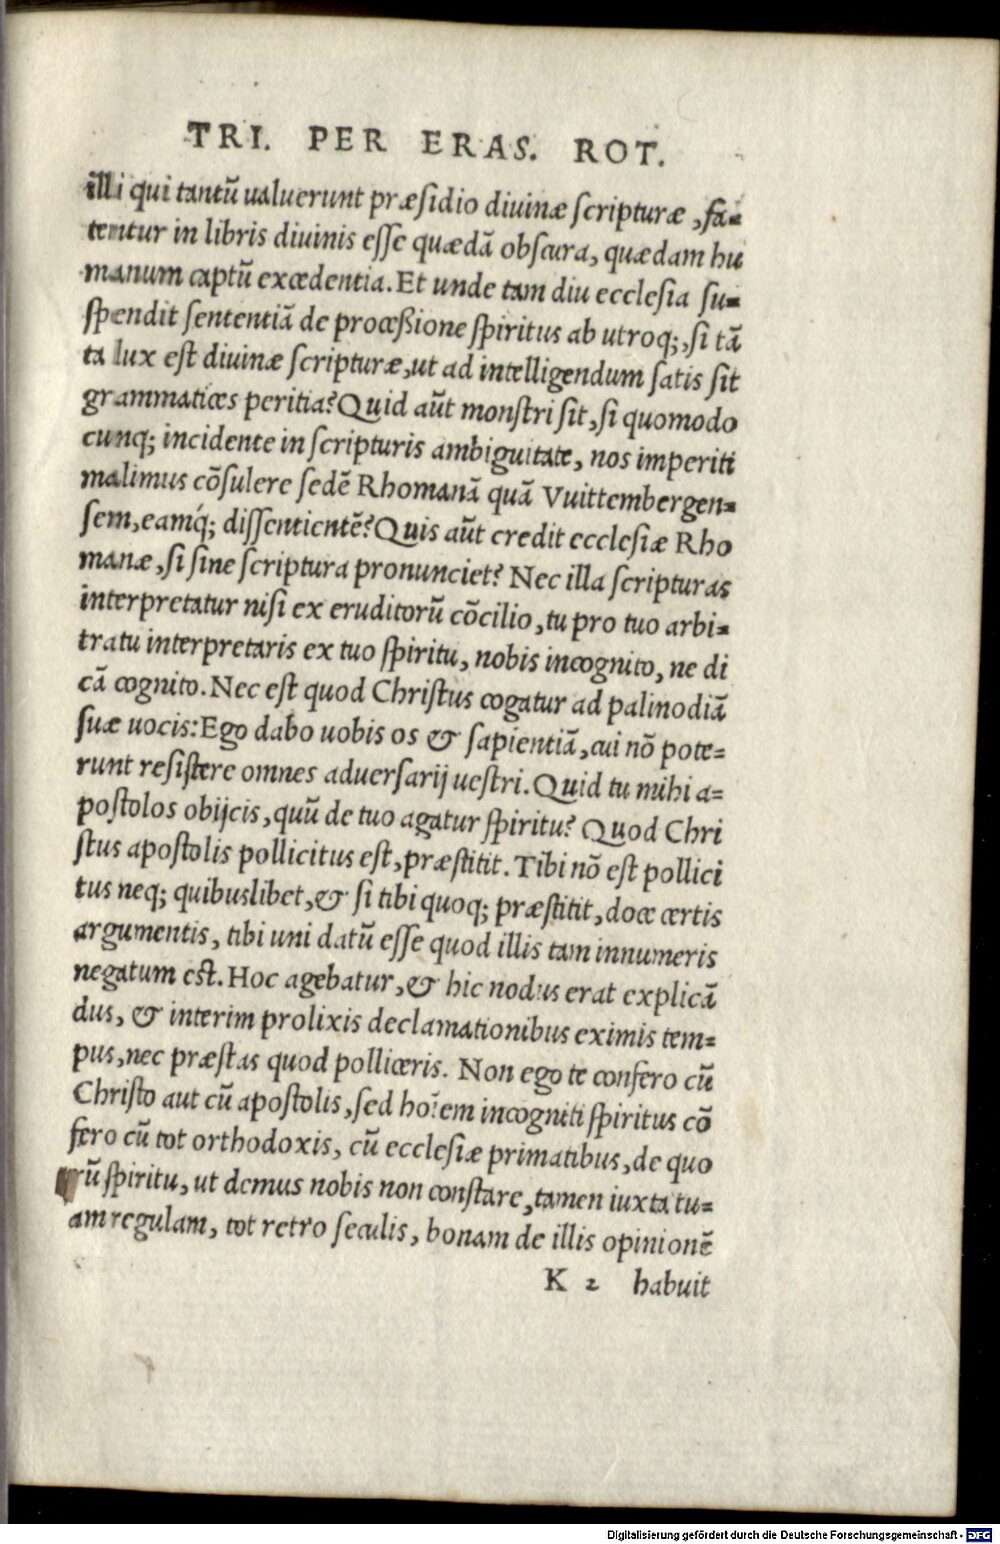 TRI. PER ERAS. ROT.
illi qui tantũ ualuerunt præsidio diuinæ scripturæ, fa=
tentur in libris diuinis esse quædã obscura, quædam hu
manum captũ excedentia. Et unde tam diu ecclesia su=
spendit sententiã de processione spiritus ab utroq;, si tã
ta lux est diuinæ scripturæ, ut ad intelligendum satis sit
grammatices peritia? Quid aũt monstri sit, si quomodo
cunq; incidente in scripturis ambiguitate, nos imperiti
malimus cõsulere sedẽ Rhomanã quã Vuittembergen=
sem, eamq́; dissentientẽ? Quis aũt credit ecclesiæ Rho
manæ, si sine scriptura pronunciet? Nec illa scripturas
interpretatur nisi ex eruditorũ cõcilio, tu pro tuo arbi=
tratu interpretaris ex tuo spiritu, nobis incognito, ne di
cã cognito. Nec est quod Christus cogatur ad palinodiã
suæ uocis: Ego dabo uobis os & sapientiã, cui nõ pote=
runt resistere omnes aduersarij uestri. Quid tu mihi a=
postolos obijcis, quũ de tuo agatur spiritu? Quod Chri
stus apostolis pollicitus est, præstitit. Tibi nõ est pollici
tus neq; quibuslibet, & si tibi quoq; præstitit, doce certis
argumentis, tibi uni datũ esse quod illis tam innumeris
negatum est. Hoc agebatur, & hic nodus erat explicã
dus, & interim prolixis declamationibus eximis tem=
pus, nec præstas quod polliceris. Non ego te confero cũ
Christo aut cũ apostolis, sed hoĩem incogniti spiritus cõ
fero cũ tot orthodoxis, cũ ecclesiæ primatibus, de quo
rũ spiritu, ut demus nobis non constare, tamen iuxta tu=
am regulam, tot retro seculis, bonam de illis opinionẽ
K 2 habuit
Digitalisierung gefördert durch die Deutsche Forschungsgemeinschaft - DFG